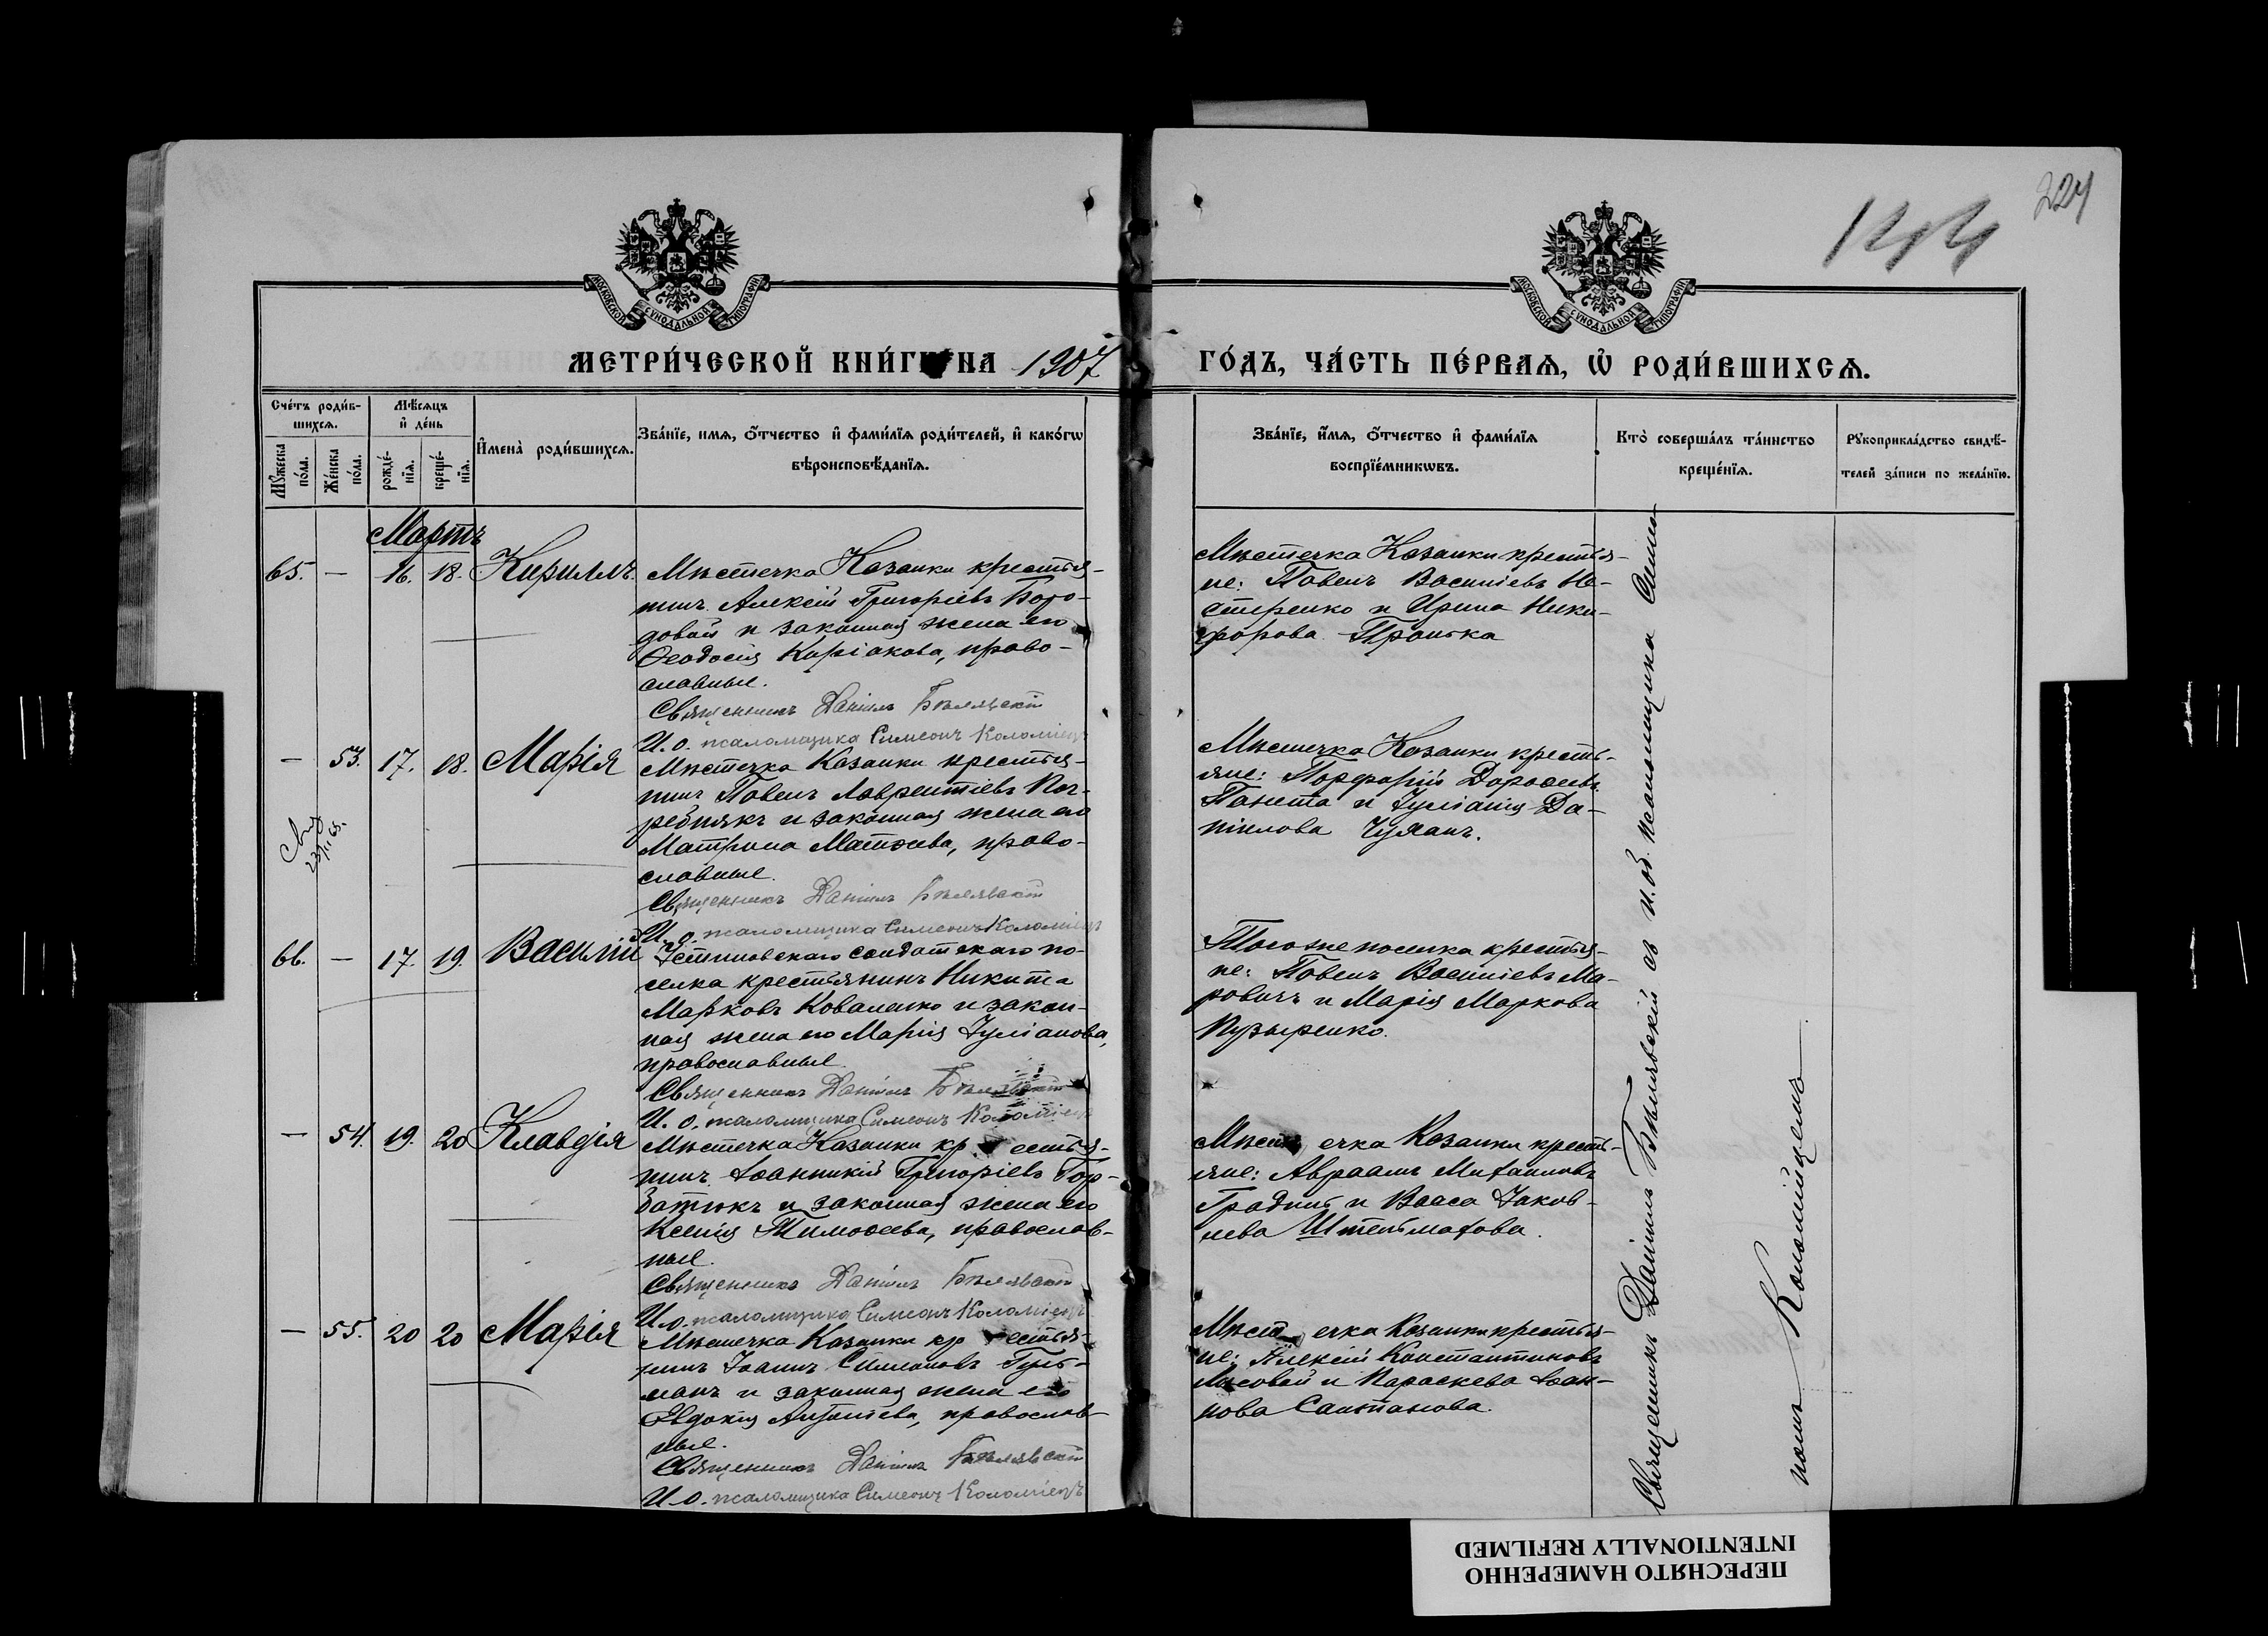 224
144
МОСКОВСКОЙ СѴНОДАЛЬНОЙ ТИПОГРАФІИ
МОСКОВСКОЙ СѴНОДАЛЬНОЙ ТИПОГРАФІИ
МЕТРИ́ЧЕСКОЙ КНИ́ГИ НА 1907
ГО́ДЪ, ЧА́СТЬ ПЕ́РВАѦ, Ѽ РОДИ́ВШИХСѦ.
Сче́тъ роди́в-
шихсѧ.
Мꙋжеска по́ла.
Же́нска по́ла.
Мѣ́сѧцъ
и҆ де́нь
рожде́-
нїѧ.
креще́-
нїѧ.
И҆мена̀ роди́вшихсѧ.
Зва́нїе, имѧ, ѻ҆́тчество и҆ фами́лїѧ роди́телей, и҆ како́гѡ
вѣроисповѣ́данїѧ.
Зва́нїе, и҆́мѧ, ѻ҆́тчество и҆ фами́лїѧ
воспрїе́мникѡвъ.
Кто̀ соверша́лъ та́инство
креще́нїѧ.
Рꙋкоприкла́дство свидѣ́-
телей за́писи по жела́нїю.
Мартъ
65. — 16. 18. Кириллъ.
Мѣстечка Казанки крестья-
нинъ Алексій Григоріевъ Боро-
довой и законная жена его
Ѳеодосія Киріакова, право-
славные.
Священникъ Даніилъ Бѣлявскій
И. о. псаломщика Симеонъ Коломіецъ
Мѣстечка Казанки крестья-
не: Павелъ Василіевъ Не-
стеренко и Ирина Ники-
форова
— 53. 17. 18. Марія
Мѣстечка Казанки крестья-
нинъ Павелъ Лаврентіевъ Пог-
ребнякъ и законная жена его
Матрона Матѳеева, право-
славные.
Священникъ Даніилъ Бѣлявскій
И. о. псаломщика Симеонъ Коломіецъ
Мѣстечка Казанки кресть-
яне: Порфирій Дороѳеевъ
и Іуліанія Да-
ніилова
66. — 17. 19. Василій
Устиновскаго солдатскаго по-
селка крестьянинъ Никита
Марковъ Коваленко и закон-
ная жена его Марія Іуліанова,
православные.
Священникъ Даніилъ Бѣлявскій
И. о. псаломщика Симеонъ Коломіецъ
Того же поселка крестья-
не: Павелъ Василіевъ Ма-
ровичъ и Марія Маркова
Пузыренко.
— 54. 19. 20 Клавдія
Мѣстечка Казанки крестья-
нинъ Іоанникій Григоріевъ Гор-
батюкъ и законная жена его
Ксенія Тимоѳеева, православ-
ные.
Священникъ Даніилъ Бѣлявскій
И. о. псаломщика Симеонъ Коломіецъ
Мѣстечка Казанки кресть-
яне: Авраамъ Михаиловъ
и Васса Іаков-
лева Штельмахова.
— 55. 20 20 Марія
Мѣстечка Казанки крестья-
нинъ Іоаннъ Симеоновъ Гуль-
манъ и законная жена его
Евдокія Антоніева, православ-
ные.
Священникъ Даніилъ Бѣлявскій
И. о. псаломщика Симеонъ Коломіецъ
Мѣстечка Казанки крестья-
не: Алексій Константиновъ
Лисовой и Параскева Іоан-
нова Салтанова.
Священникъ Даніилъ Бѣлявскій съ и. об. псаломщика Симео-
номъ Коломійцемъ
ПЕРЕСНЯТО НАМЕРЕННО
INTENTIONALLY REFILMED